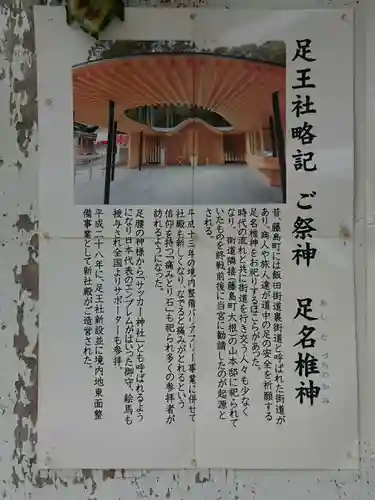 足王社略記 ご祭神 足名椎神
あしなづちのかみ
昔、藤島町には飯田街道裏街道と呼ばれた街道が
あり、商人や旅人達が道中の足の安全を祈願する
足名椎神を祀るほこらがあった。
時代の流れと共に街道を行き交う人々も少なく
なり、街道隣接(藤島町大根)の山本邸に祀られて
いたものを終戦前後に当宮に勧請したのが起源と
される。
平成十三年の境内整備バリアフリー事業に併せて
社殿も新しくなり、なでると痛みがとれるという
信仰を持つ「痛みとり石」も祀られ多くの参拝者が
訪れるようになった。
足腰の神様から「サッカー神社」とも呼ばれるよう
になり日本代表のエンブレムがはいった御守、絵馬も
授与され全国よりサポーターも参拝。
平成二十八年に、足王社新設並に境内地東面整
備事業として新社殿がご造営された。